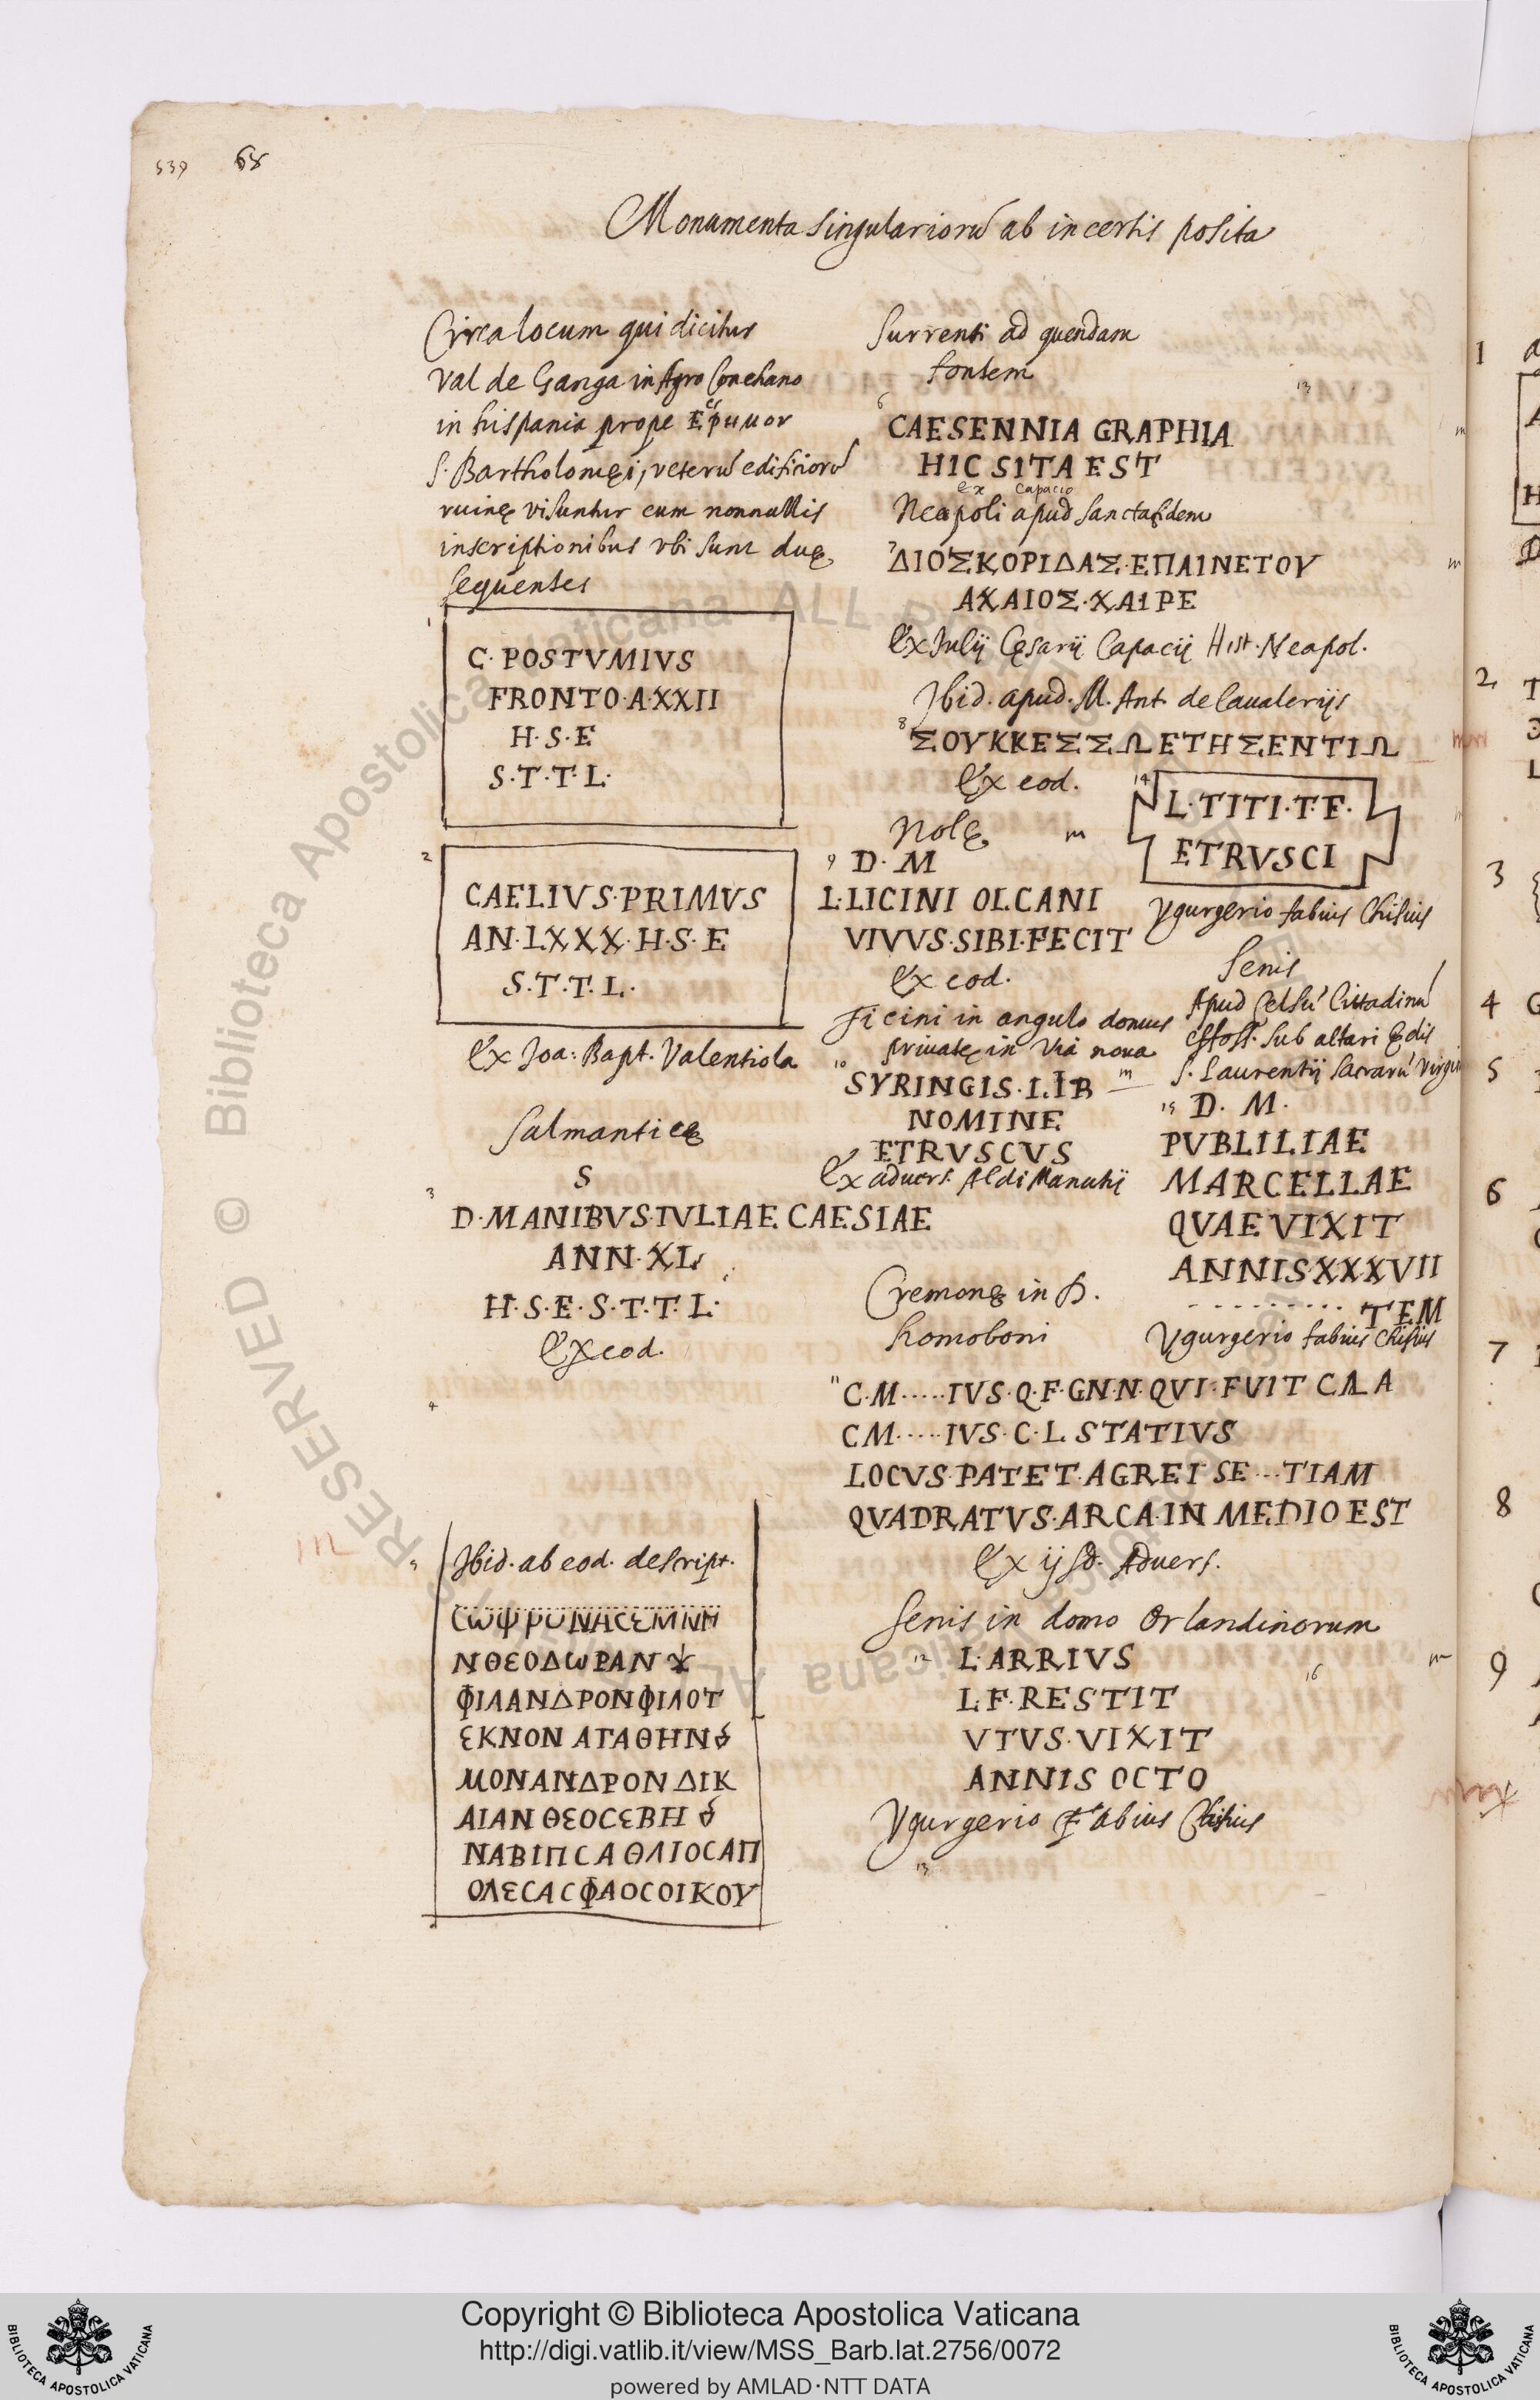 539 68
Monumenta singulariorũ ab incertis posita
Circa locum qui dicitur
Val de Ganga in Agro Conchano
in hispania prope
S. Bartholomęi, veterũ edificiorũ
ruinę visuntur cum nonnullis
inscriptionibus vbi sunt duę
sequentes
1
C· POSTVMIVS
FRONTO·A·XXII
H·S·E
S·T·T·L·
2
CAELIVS·PRIMVS
AN·LXXX·H·S·E
S·T·T·L·
Ex Joa: Bapt. Valentiola
Salmanticę
S
3
D·MANIBVS·IVLIAE CAESIAE
ANN·XL
H·S·E·S·T·T·L·
Ex eod.
4
5
Ibid. ab eod. descript.
CωΨΡΟΝΑCΕΜΝΗ
ΝΘΕΟΔωΡΑΝ
ΦΙΛΑΝΔΡΟΝΦΙΛΟΤ
ΕΚΝΟΝ ΑΓΑΘΗΝ
ΜΟΝΑΝΔΡΟΝ ΔΙΚ
ΑΙΑΝ ΘΕΟCΕΒΗ
ΝΑΒΙΠCΑΘΛΙΟCΑΠ
ΟΛΕCΑCΦΑΟCΟΙΚΟΥ
Surrenti ad quendam
fontem
6
CAESENNIA GRAPHIA
HIC SITA EST
ex Capacio
Neapoli apud
7
ΔΙΟΣΚΟΡΙΔΑΣ·ΕΠΑΙΝΕΤΟΥ
ΑΧΑΙΟΣ·ΧΑΙΡΕ
Ex Julij Cęsarij Capacij Hist. Neapol.
Ibid. apud. M. Ant. de Caualerijs
8
ΣΟΥΚΚΕΣΣΩ ΕΤΗΣΕΝΤΙΩ
Ex eod.
Nolę m
9 D·M
L·LICINI OLCANI
VIVVS·SIBI·FECIT
Ex eod.
Ticini in angulo domus
priuatę in Via noua
10
SYRINGIS·LIB m
NOMINE
ETRVSCVS
Ex aduers. Aldi Manutij
Cremonę in D.
Homoboni
11
C·M·····IVS·Q·F·GN·N·QVI·FVIT CΛA
C M·····IVS·C·L STATIVS
LOCVS·PATET·AGREI SE···TIAM
QVADRATVS·ARCA·IN MEDIO EST
Ex ijsd. Aduers.
Senis in domo Orlandinorum
12 L·ARRIVS
L·F·RESTIT
VTVS·VIXIT
ANNIS OCTO
Vgurgerio Fabius Chisius
13
13
14
L·TITI·T·F·
ETRVSCI
Vgurgerio fabius Chisius
Senis
Apud Celsũ Cittadinũ
effoss. sub altari Ędis
S. Laurentij sacrarũ Virgin
15 D. M.
PVBLILIAE
MARCELLAE
QVAE VIXIT
ANNIS XXXVII
·········TEM
Vgurgerio fabius Chisius
16
1
2
3
4
5
6
7
8
9
Copyright © Biblioteca Apostolica Vaticana
http://digi.vatlib.it/view/MSS_Barb.lat.2756/0072
powered by AMLAD·NTT DATA
BIBLIOTECA APOSTOLICA VATICANA
BIBLIOTECA APOSTOLICA VATICANA